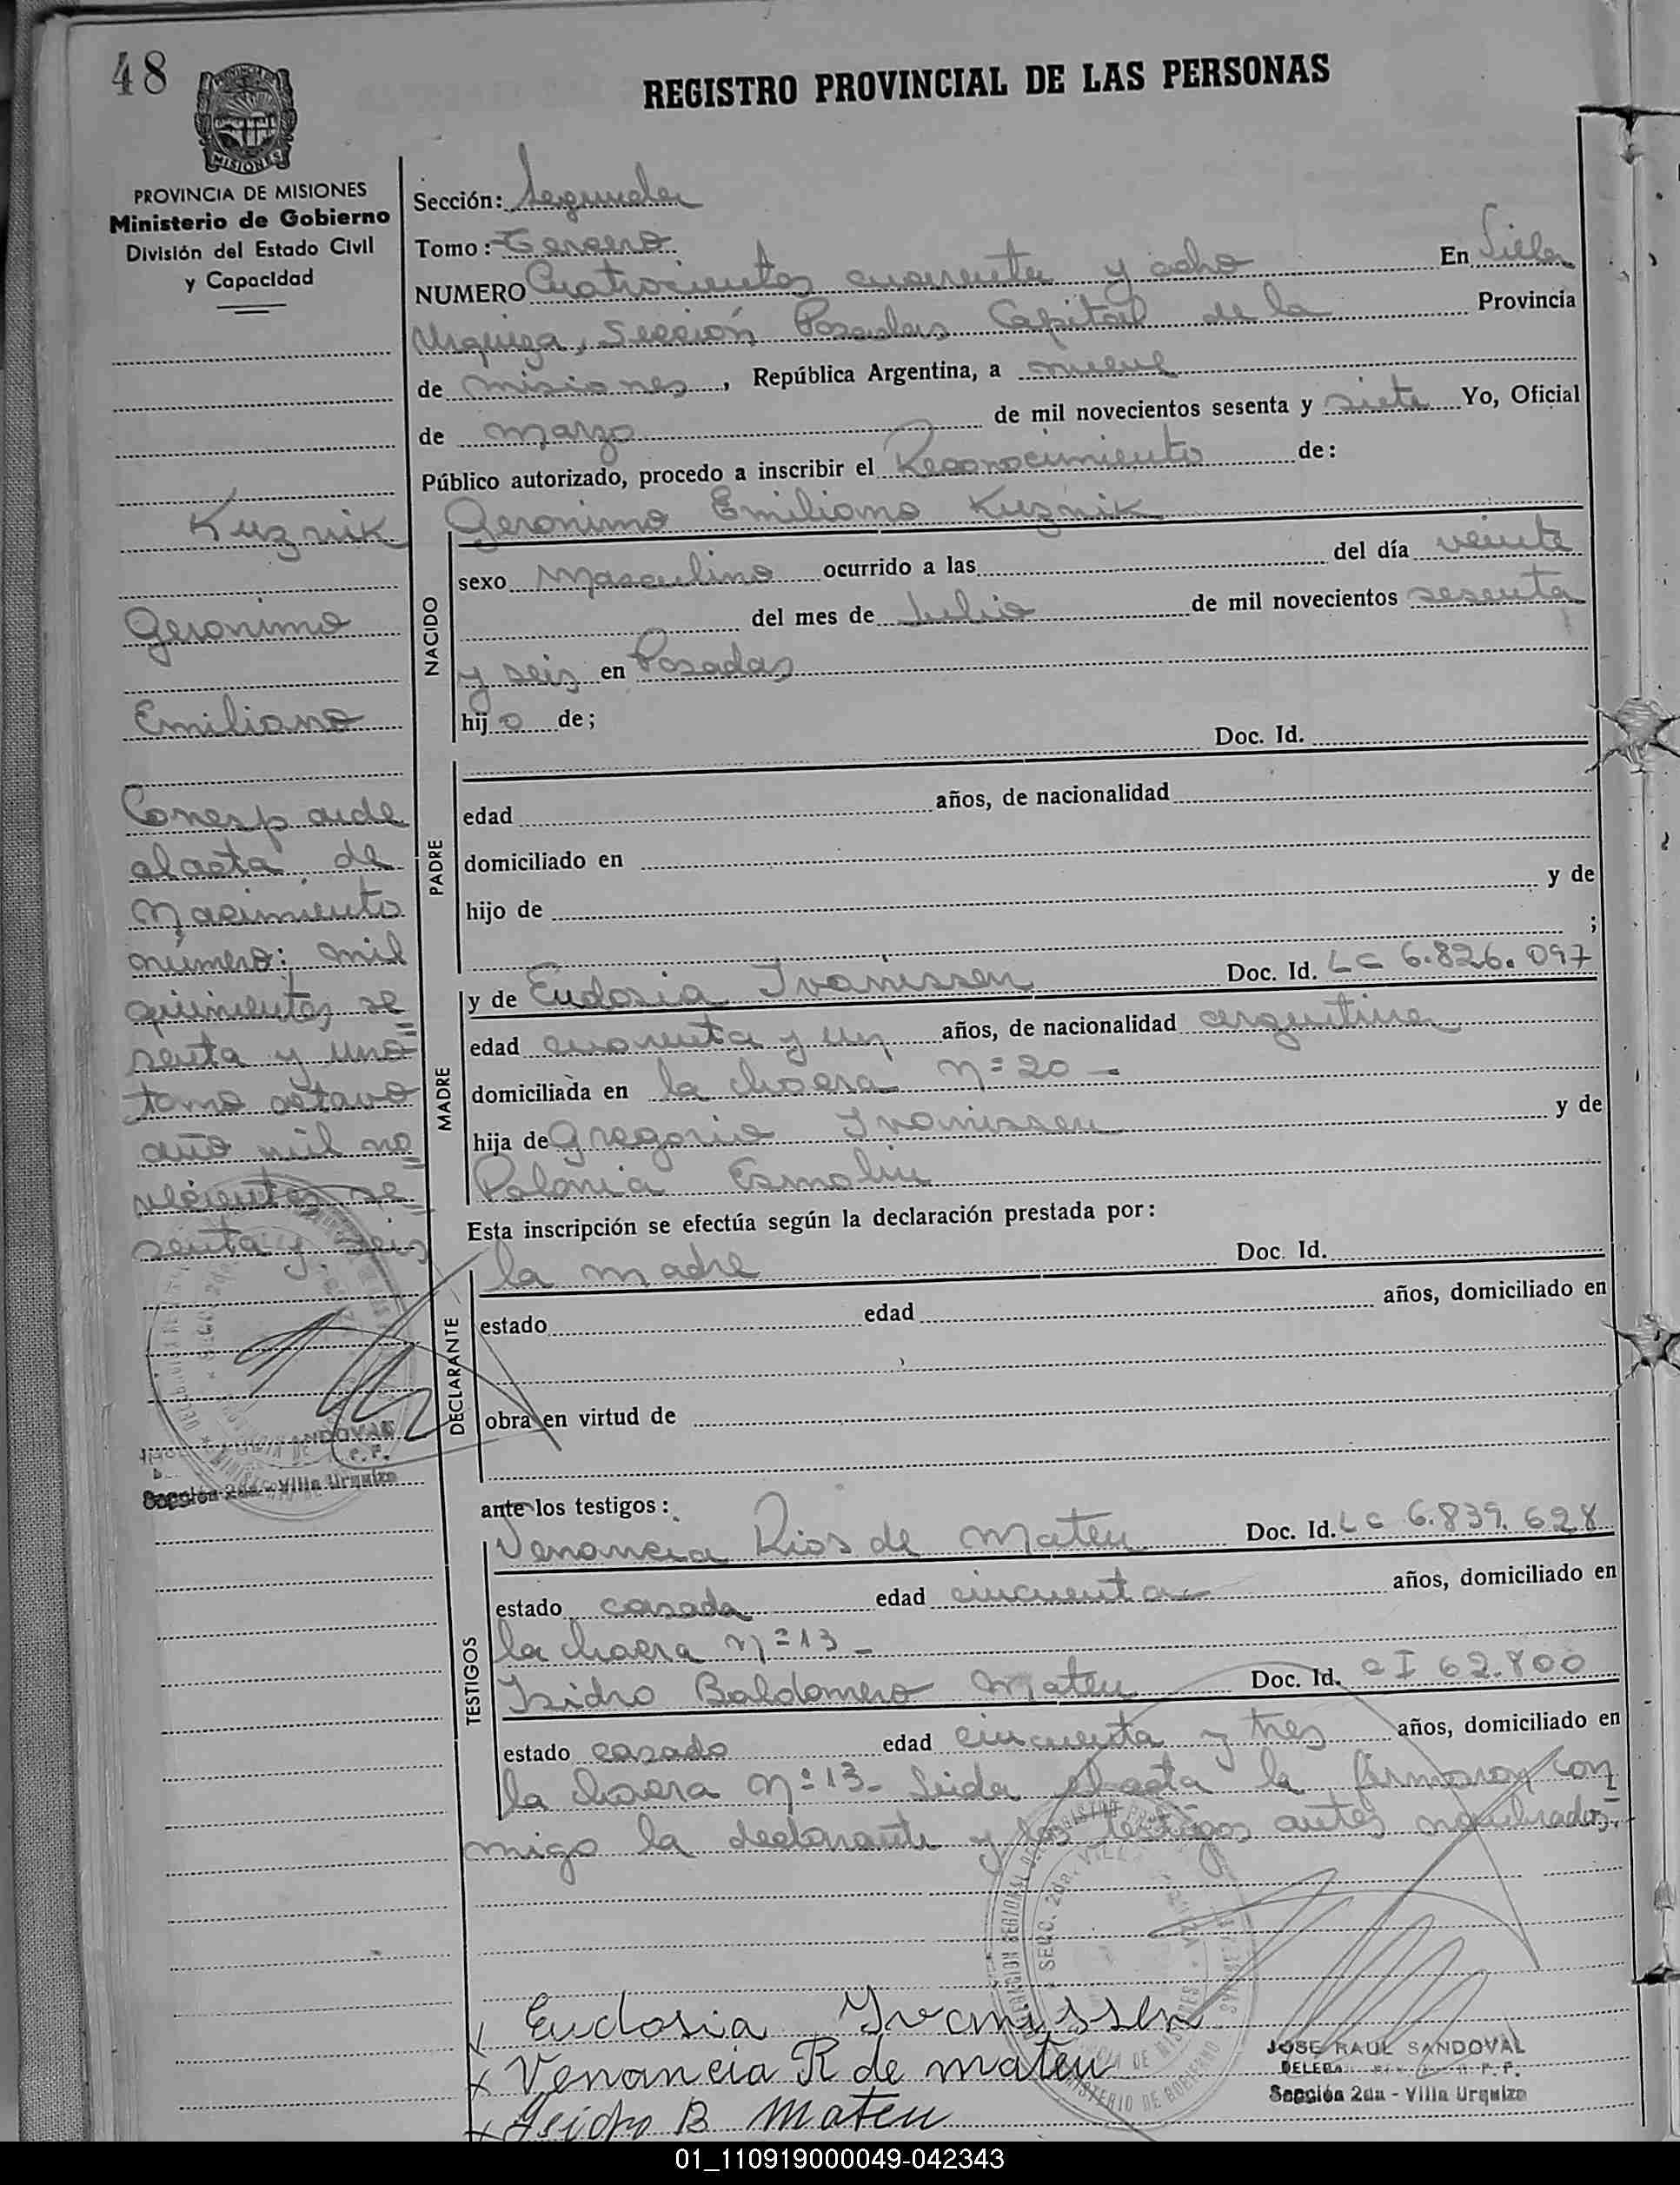 48
REGISTRO PROVINCIAL DE LAS PERSONAS
MISIONES
PROVINCIA DE MISIONES
Ministerio de Gobierno
División del Estado Civil
y Capacidad
Sección: Segunda
Tomo: Tercero
NUMERO Cuatrocientos cuarenta y ocho En Villa
Urquiza, Sección Posadas Capital de la Provincia
de misiones, República Argentina, a nueve
de marzo de mil novecientos sesenta y siete Yo, Oficial
Público autorizado, procedo a inscribir el Reconocimiento de:
Geronimo Emiliano Kuznik
NACIDO
sexo Masculino ocurrido a las del día veinte
del mes de Julio de mil novecientos sesenta
y seis en Posadas
hijo de;
Doc. Id.
PADRE
edad años, de nacionalidad
domiciliado en
hijo de y de
;
y de Eudosia Ivanissen Doc. Id. LC 6.826.097
MADRE
edad cuarenta y un años, de nacionalidad argentina
domiciliada en la chacra Nº 20 -
hija de Gregorio Ivanissen y de
Polonia Esmolin
Esta inscripción se efectúa según la declaración prestada por:
la madre Doc. Id.
DECLARANTE
estado edad años, domiciliado en
obra en virtud de
ante los testigos:
Venancia Rios de Mateu Doc. Id. LC 6.839.628
TESTIGOS
estado casada edad cincuenta años, domiciliado en
la chacra Nº 13 -
Isidro Baldomero Mateu Doc. Id. CI 62.800
estado casado edad cincuenta y tres años, domiciliado en
la chacra Nº 13- Leida el acta la firmaron con
migo la declarante y los testigos antes nombrados.
Kuznik
Geronimo
Emiliano
Corresp onde
al acta de
Nacimiento
número: mil
quinientos se
senta y uno
tomo octavo
año mil no
vecientos se
senta y seis
SANDOVAL
P.P.
Sección 2da - Villa Urquiza
Eudosia Ivanissen
x Venancia R de mateu
x Isidro B Mateu
JOSE RAUL SANDOVAL
P.P.
Sección 2da - Villa Urquiza
SECC. 2da. VILLA
MINISTERIO DE GOBIERNO
01_110919000049-042343